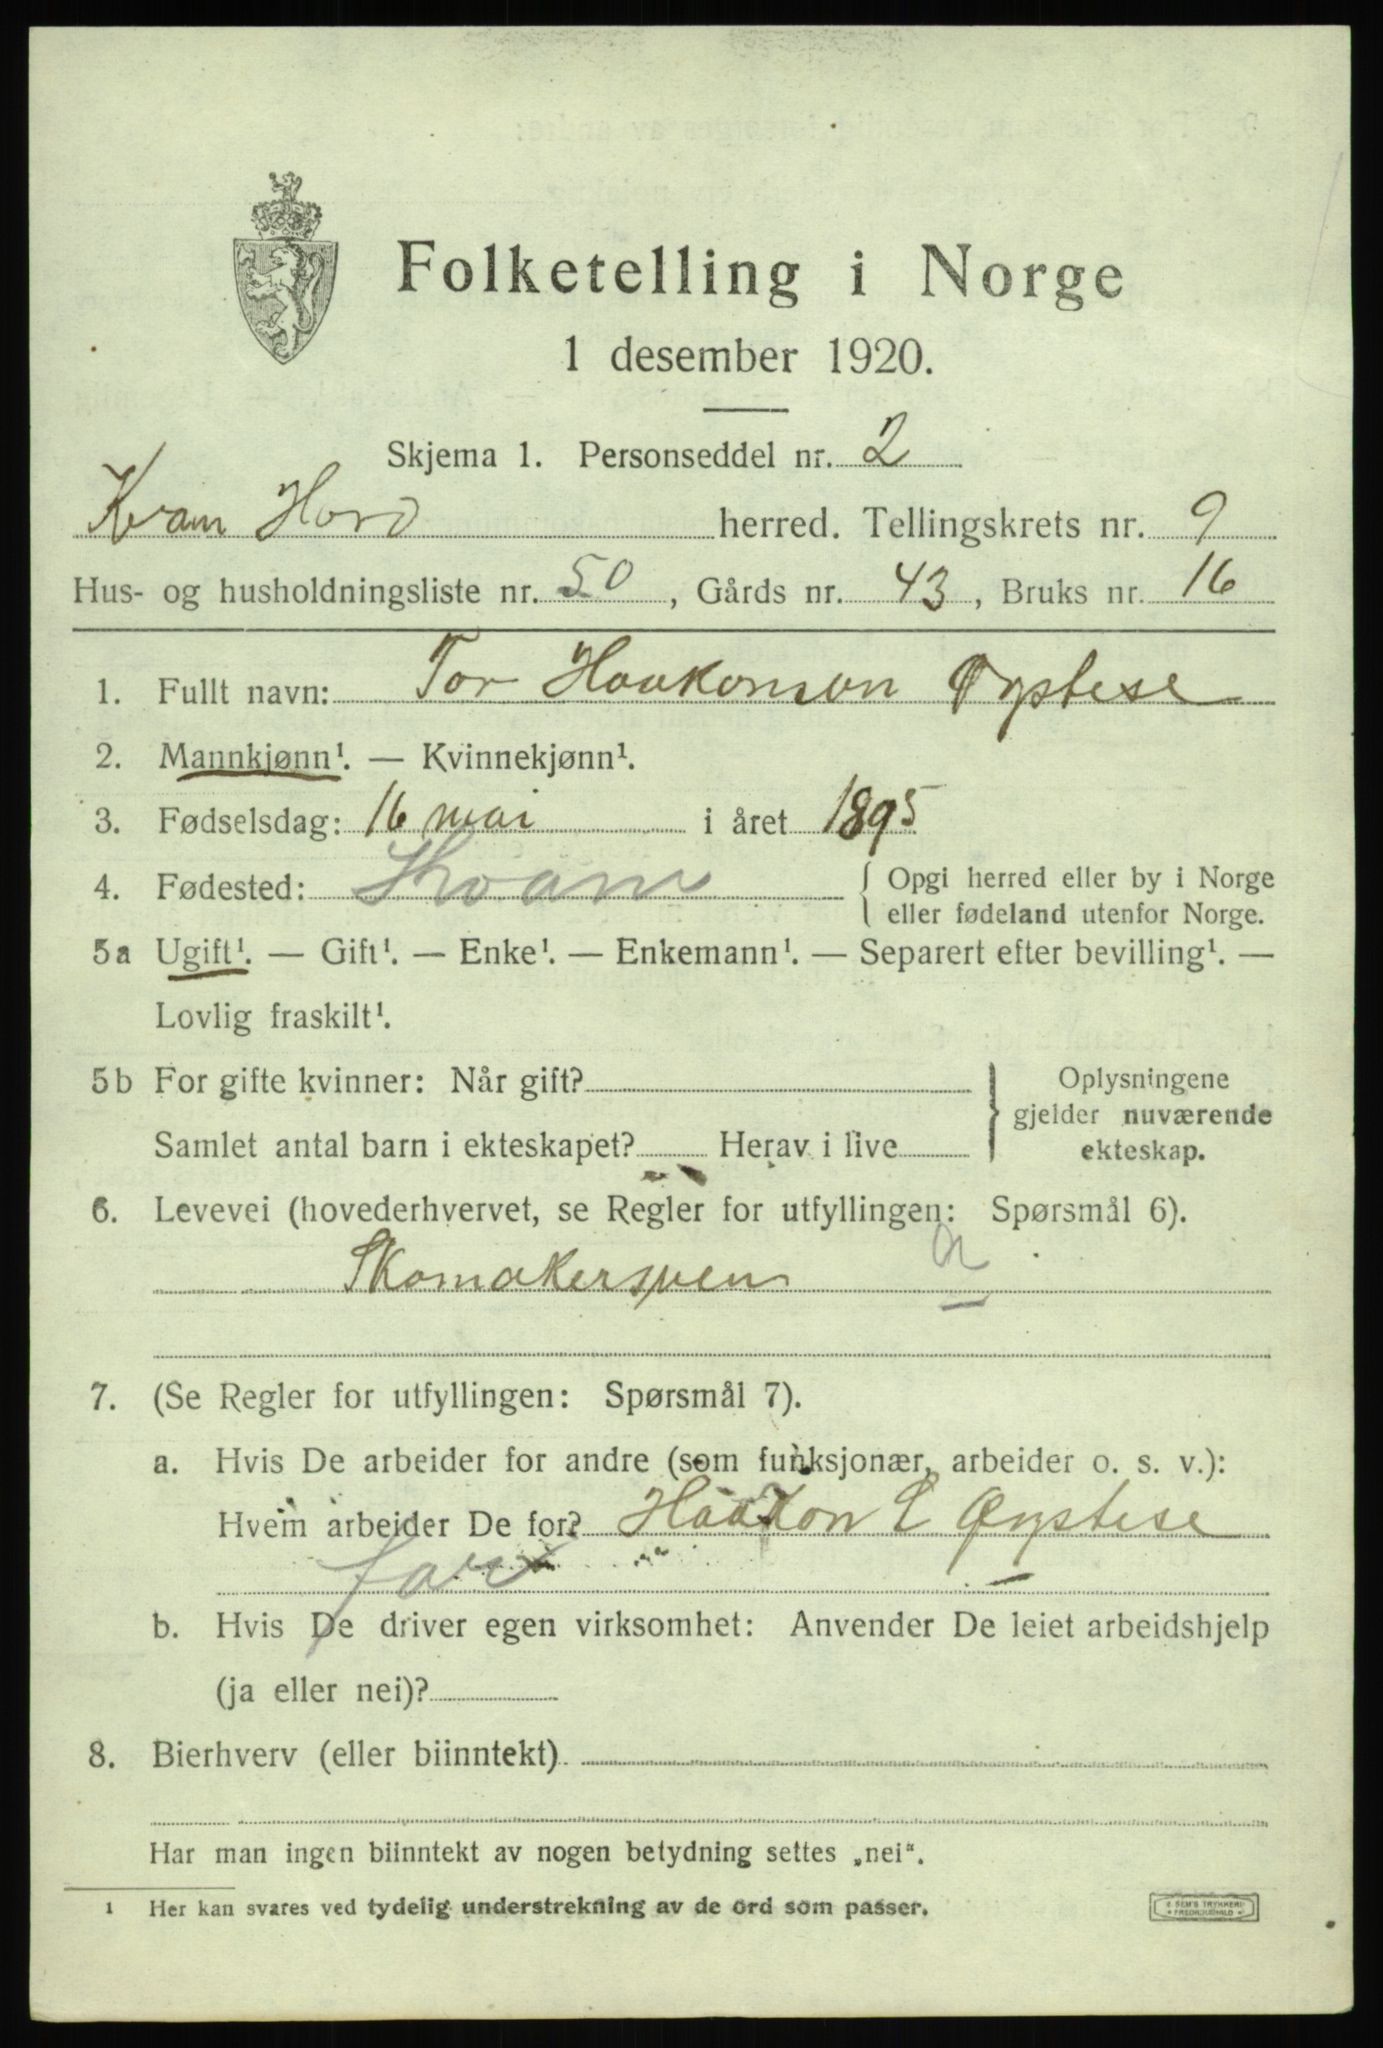 Folketelling i Norge
1 desember 1920.
Skjema 1. Personseddel nr. 2
Kvam Hord herred. Tellingskrets nr. 9
Hus- og husholdningsliste nr. 50, Gårds nr. 43, Bruks nr. 16
1. Fullt navn: Tor Haakonson Øystese
2. Mannkjønn¹. — Kvinnekjønn¹.
3. Fødselsdag: 16 mai i året 1895
4. Fødested: Kvam { Opgi herred eller by i Norge
eller fødeland utenfor Norge.
5a Ugift¹. — Gift¹. — Enke¹. — Enkemann¹. — Separert efter bevilling¹. —
Lovlig fraskilt¹.
5b For gifte kvinner: Når gift? } Oplysningene
gjelder nuværende
Samlet antal barn i ekteskapet? Herav i live ekteskap.
6. Levevei (hovederhvervet, se Regler for utfyllingen: Spørsmål 6).
Skomakersven a
7. (Se Regler for utfyllingen: Spørsmål 7).
a. Hvis De arbeider for andre (som funksjonær, arbeider o. s. v.):
Hvem arbeider De for? Haakon E Øystese
far
b. Hvis De driver egen virksomhet: Anvender De leiet arbeidshjelp
(ja eller nei)?
8. Bierhverv (eller biinntekt)
Har man ingen biinntekt av nogen betydning settes „nei“.
1 Her kan svares ved tydelig understrekning av de ord som passer.
SEM'S TRYKKERI
FREDRIKSHALD